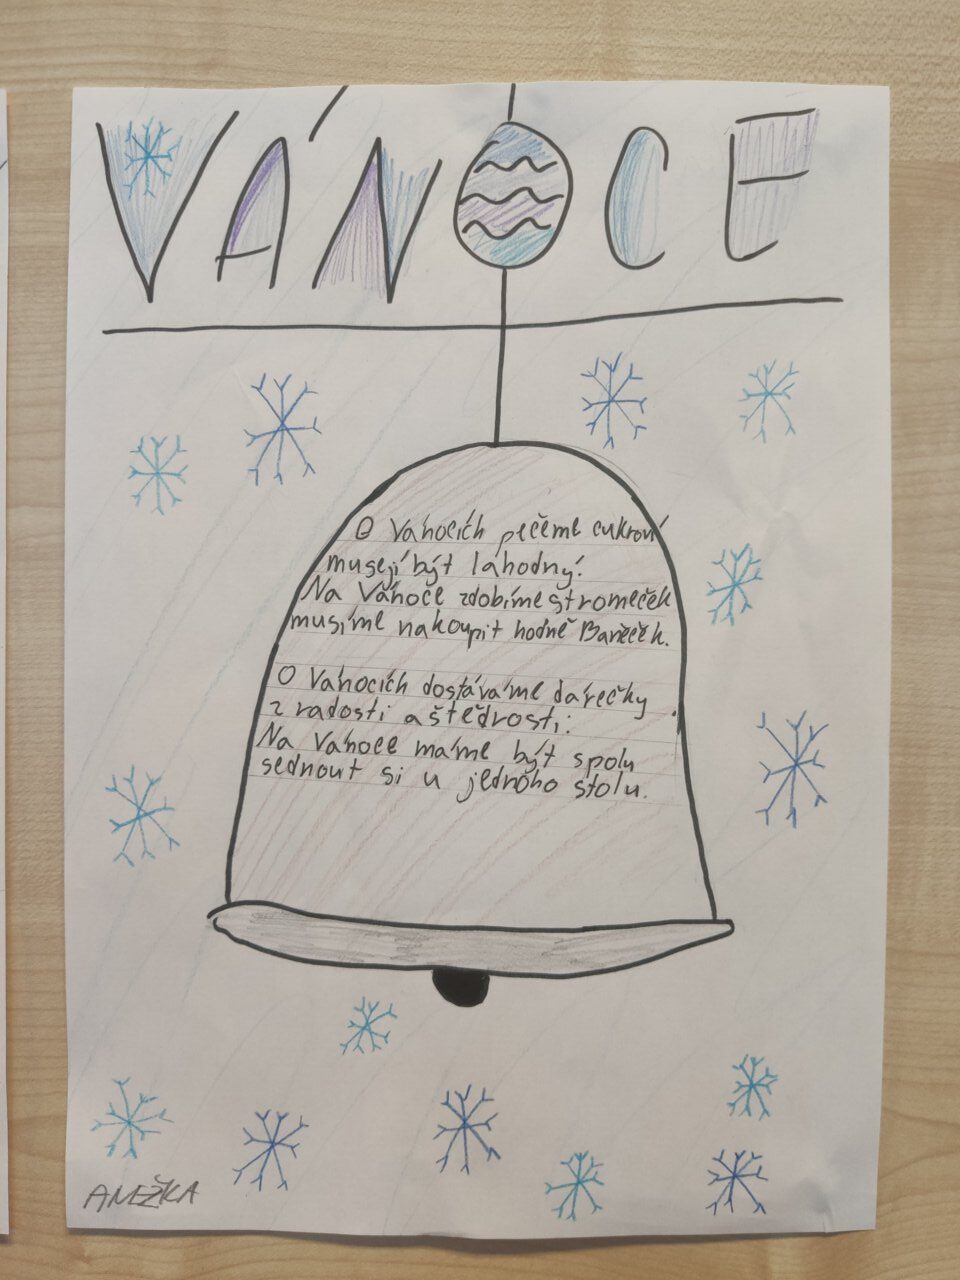 VÁNOCE
O Vánocích pečeme cukroví
musejí být lahodný.
Na Vánoce zdobíme stromeček
musíme nakoupit hodně Baněček.
O Vánocích dostáváme dárečky
z radosti a štědrosti.
Na Vánoce máme být spolu
sednout si u jednoho stolu.
ANEŽKA